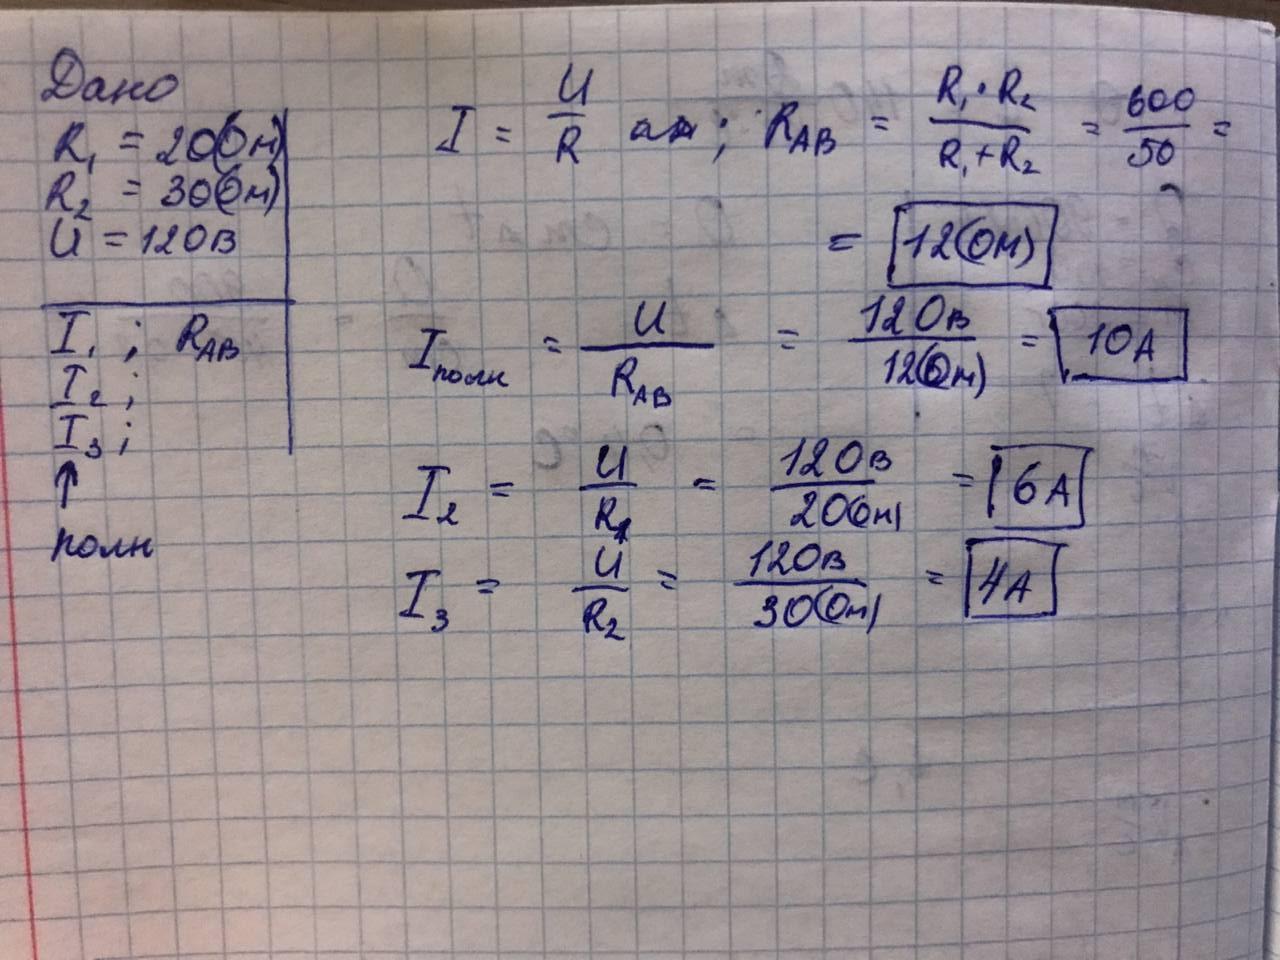 Дано
R₁ = 20(Ом)
R₂ = 30(Ом)
U = 120в
I₁ ; R_AB
I₂ ;
I₃ ;
↑
полн
I = U/R ; R_AB = R₁·R₂/R₁+R₂ = 600/50 =
= 12(Ом)
I полн = U/R_AB = 120в/12(Ом) = 10А
I₂ = U/R₁ = 120в/20(Ом) = 6А
I₃ = U/R₂ = 120в/30(Ом) = 4А